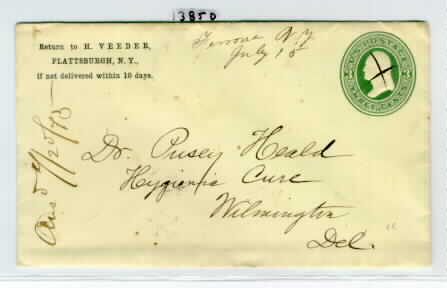 3850
Return to H. VEEDER,
PLATTSBURGH, N.Y.,
if not delivered within 10 days.
N.Y
July 15
U.S. POSTAGE
THREE CENTS
Dr. Pusey Heald
Hygienic Cure
Wilmington
Del.
Ans'd 7/20/75